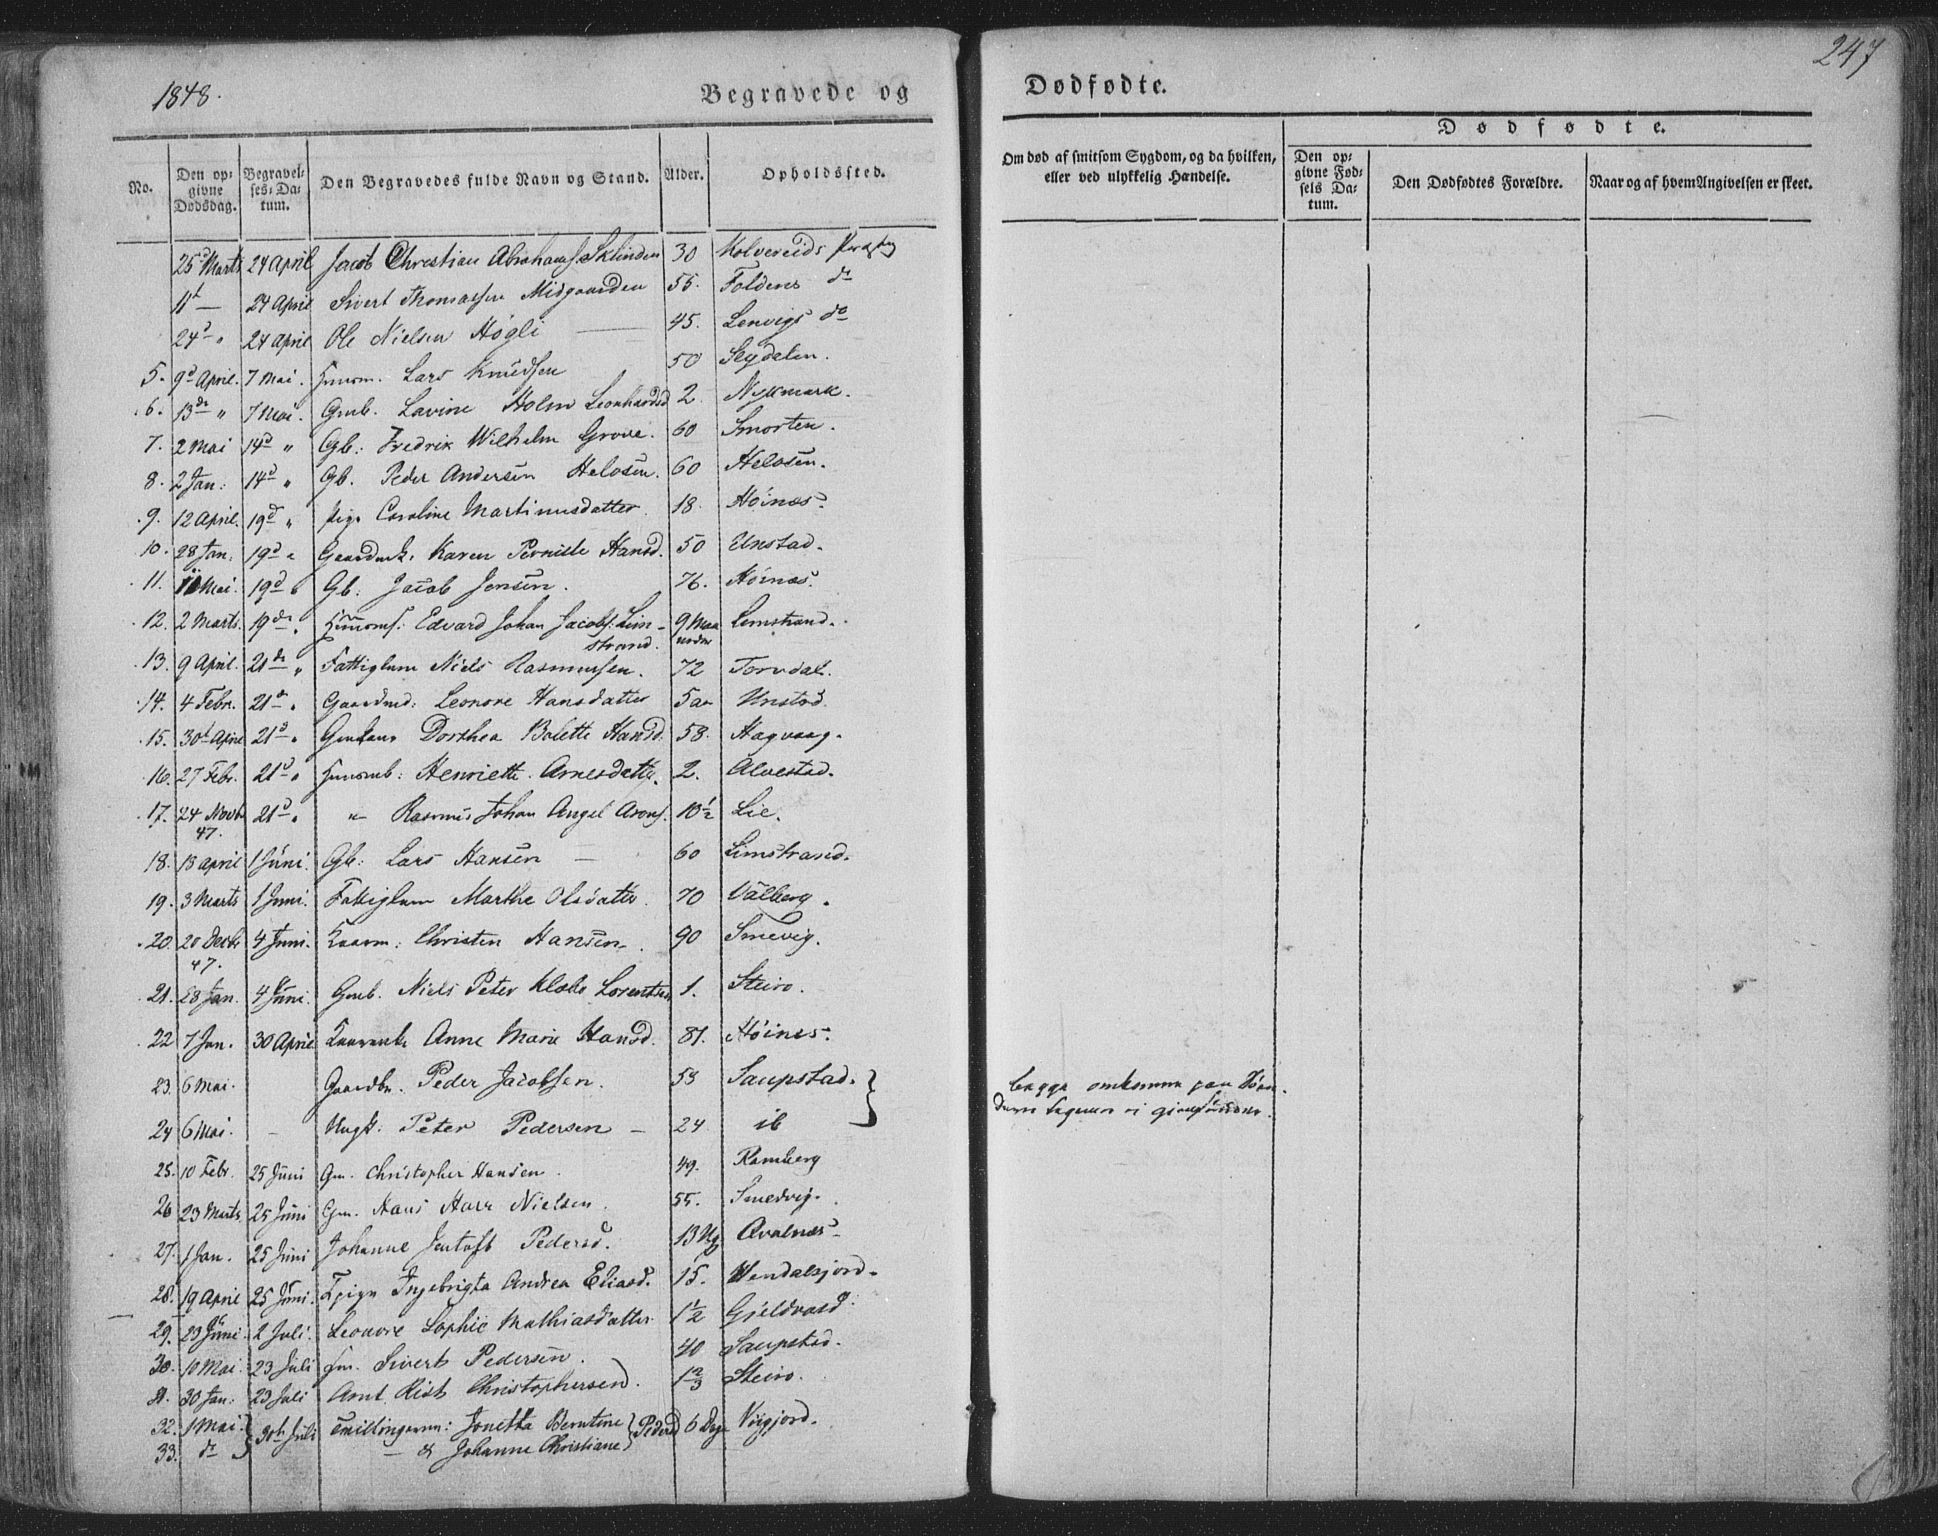 1848.
247
Begravede og Dødfødte.
No.
Den opgivne Dødsdag.
Begravelses-Datum.
Den Begravedes fulde Navn og Stand.
Alder.
Opholdssted.
Om død af smitsom Sygdom, og da hvilken, eller ved ulykkelig Hændelse.
Dødfødte.
Den opgivne Fødsels Datum.
Den Dødfødtes Forældre.
Naar og af hvem Angivelsen er skeet.
25d Marts 24 April Jacob Christian Abrahams. Sklinden 30 Kolvereids
11t — 24 April Sivert Thomassen Midgaarden 55. Foldens do
24d " 24 April Ole Nielsen Høgli — 45. Lenvigs do
5. 9d April. 7 Mai. Huusm. Lars Knudsen 50 Seydalen.
6. 13de " 7 Mai. Gmb. Lavine Holm Leonhardsd 2. Nykmark.
7. 2 Mai 14d " Gb. Fredrik Wilhelm Grove. 60 Smorten.
8. 2 Jan. 14d " Gb. Peder Andersen Helosen. 60 Helosen.
9. 12 April. 19d " Pige Caroline Martinusdatter. 18. Höinæs.
10. 28 Jan. 19d " Karen Pernille Hansd. 50 Unstad.
11. Mai. 19d " Gb. Jacob Jensen. 76. Höinæs.
12. 2 Marts. 19de " Huusms. Edvard Johan Jacobs. Limstrand. 9 Maaneder Lemstrand.
13. 9 April. 21de " Fattiglem Niels Rasmussen. 72 Torvdal.
14. 4 Febr. 21d " Leonore Hansdatter 5 Unstad.
15. 30t April 21d " Dorthea Bolette Hansd. 58. Hagvaag.
16. 27 Febr. 21d " Huusmb. Henriette Arnesdatter. 2. Alvestad.
17. 24 Novbr 47. 21d " " Rasmus Johan Angel Arons. 10½ Lie.
18. 13 April 1 Juni. Gb. Lars Hansen — 60 Limstrand.
19. 3 Marts 1 Juni. Fattiglem Marthe Olsdatter. 70 Valberg.
20. 20 Decbr 47. 4 Juni. Kaarm. Christen Hansen. 90 Smevig.
21. 28 Jan. 4 Juni. Gmb. Niels Peter Klæbo Lorentsen 1. Steiro.
22 7 Jan. 30 April Anne Marie Hansd. 81. Höines.
23. 6 Mai. Gaardbr. Peder Jacobsen. 53 Saupstad.
begge omkomne paa
24 6 Mai. — Ungk. Peter Pedersen — 24 ib
25. 10 Febr. 25 Juni Gm. Christopher Hansen. 49. Ramberg
26 23 Marts 25 Juni Gm. Hans Harr Nielsen. 55. Smedvig.
27. 1 Jan. 25 Juni Johanne Jentoft Pedersd. 13 Ug. Qvalnæs.
28. 19 April 25 Juni. Ingebrigta Andrea Eliasd. 15. Vendalsjord.
29. 23 Juni. 2 Juli. Leonore Sophie Mathiasdatter. 1½ Gjeldvasd.
30. 10 Mai. 23 Juli Sivert Pedersen. 40 Saupstad.
31. 30 Jan. 23 Juli Arnt Rist Christophersen. 1⅔ Steiro.
32. 1 Mai. 30t Juli Jonetta Berntine Pedersd 6 Dage Voigjord.
33. do — & Johanne Christiane